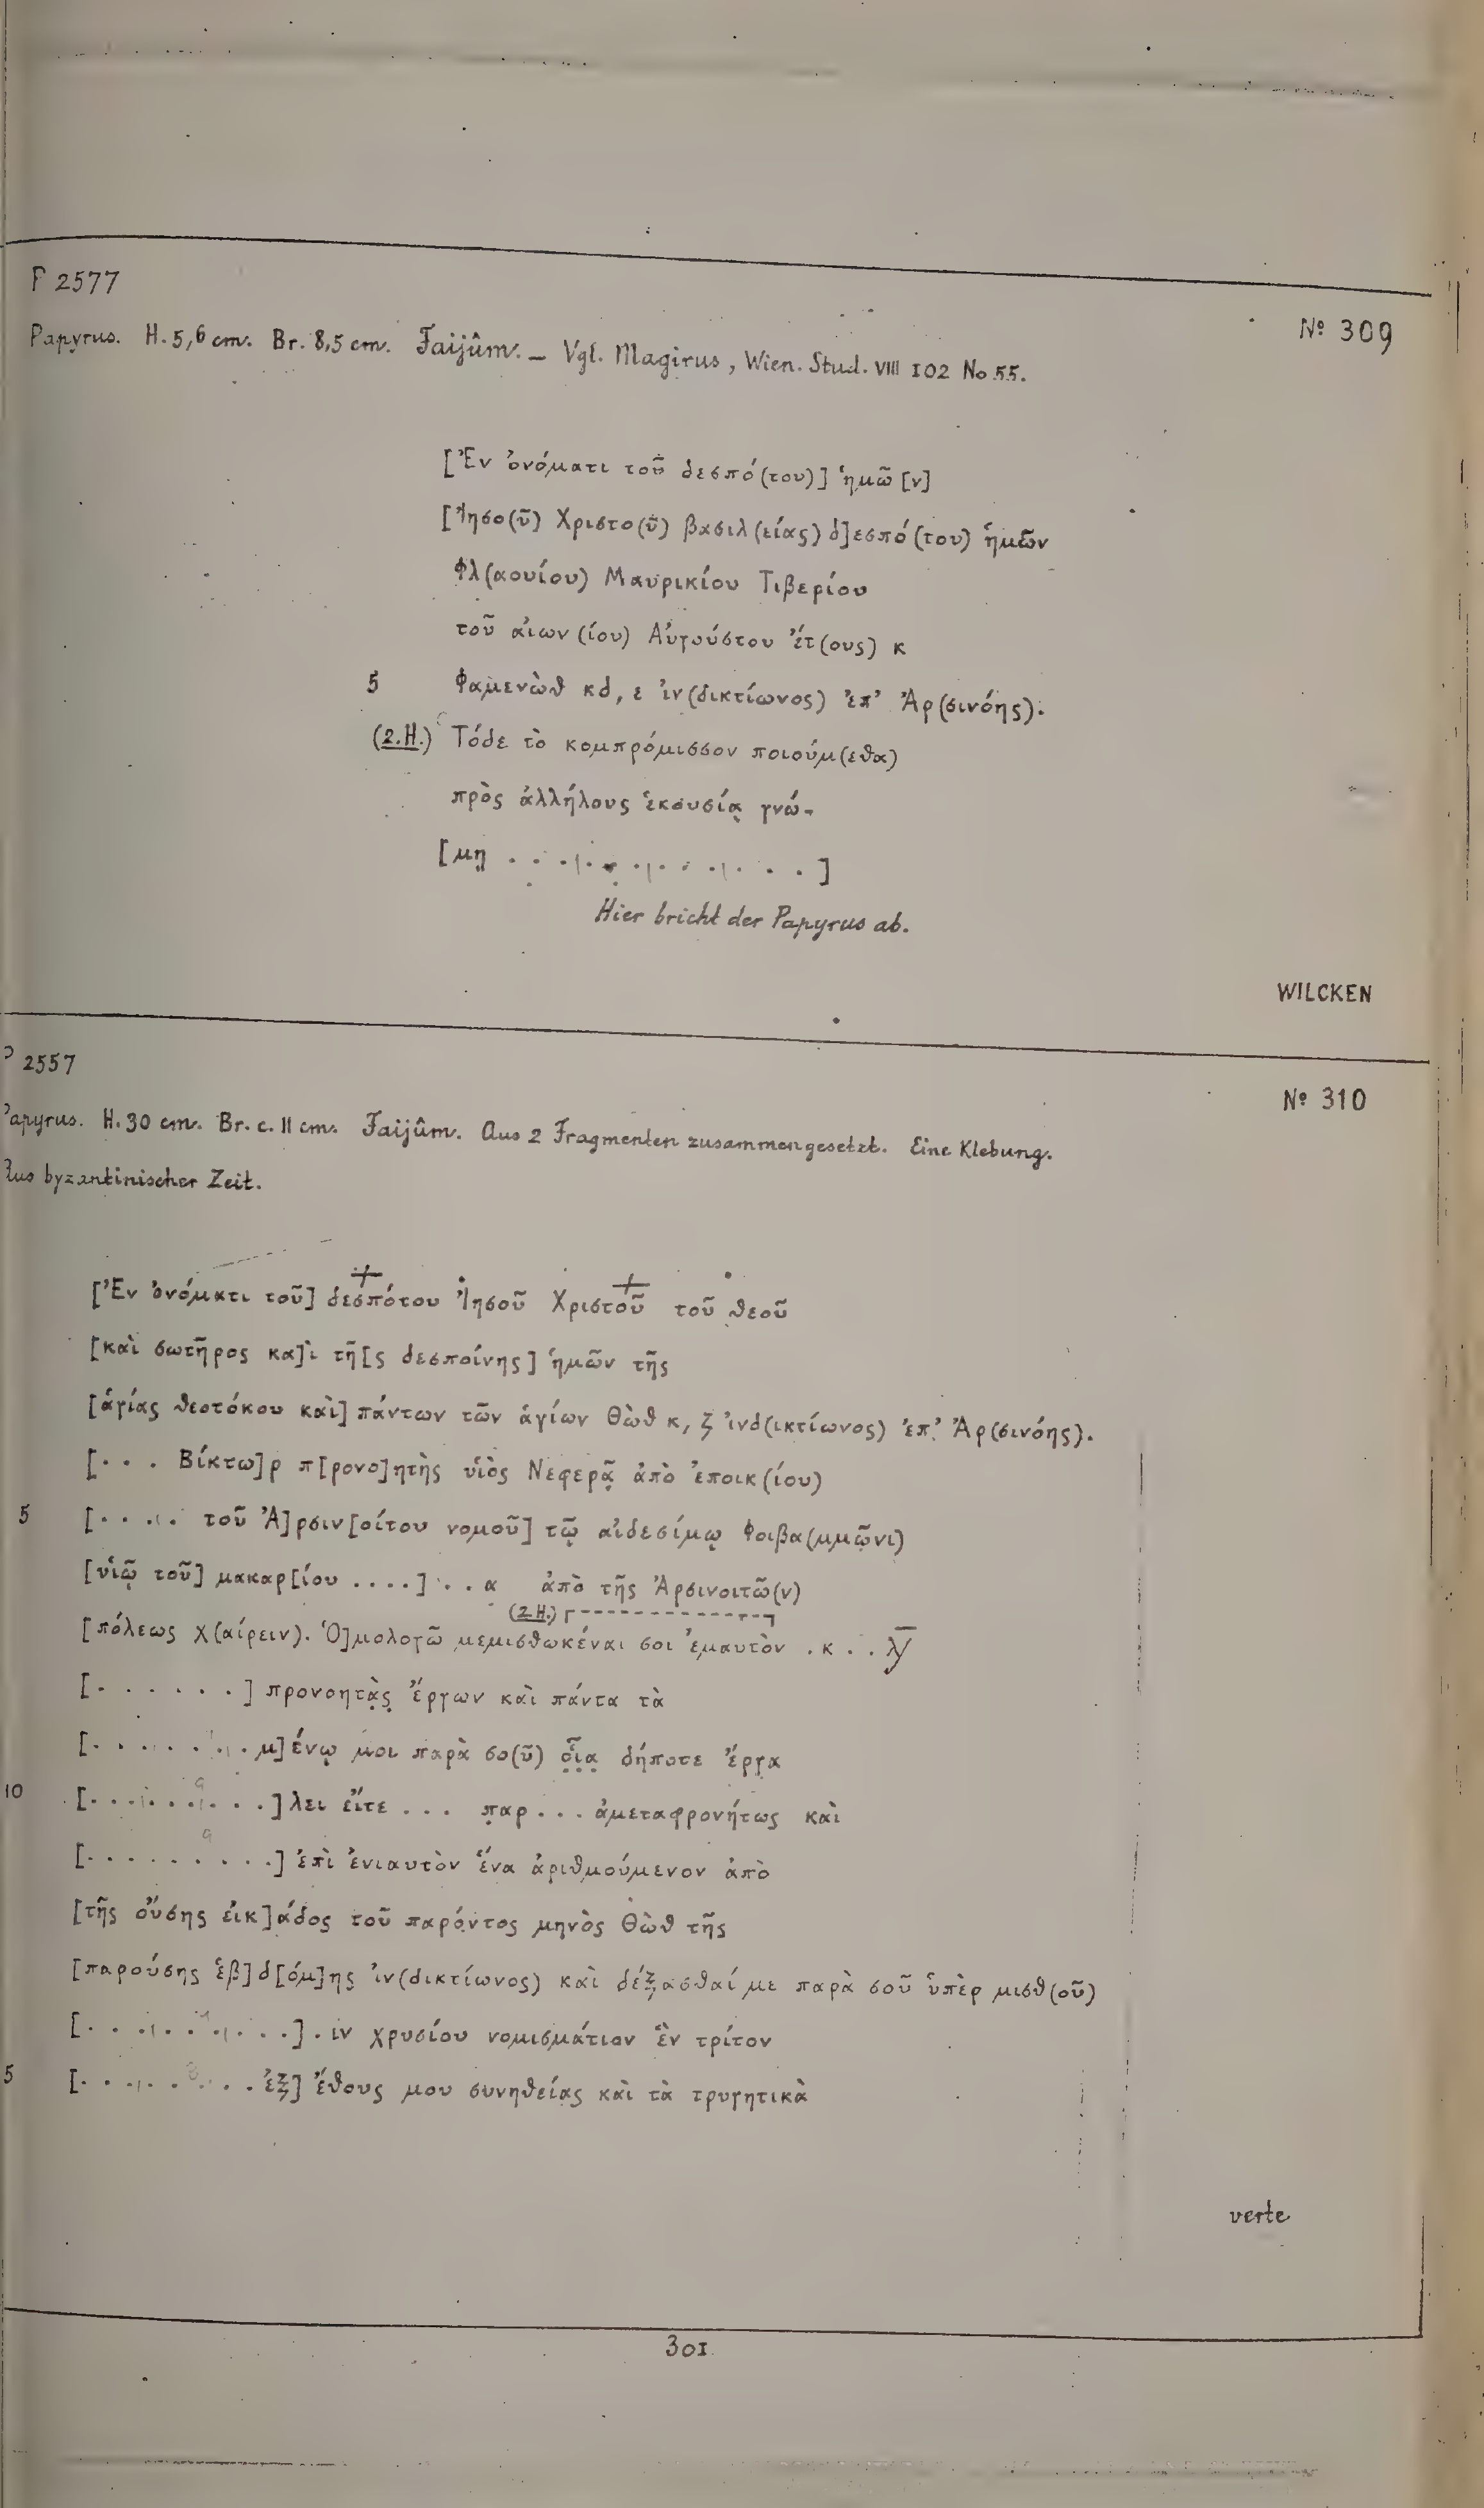 P 2577
Nº 309
Papyrus. H. 5,6 cm. Br. 8,5 cm. Faijûm. – Vgl. Magirus, Wien. Stud. VIII 102 No 55.
[Ἐν ὀνόματι τοῦ δεσπό(του)] ἡμῶ[ν]
[Ἰησο(ῦ) Χριστο(ῦ) βασιλ(είας) δ]εσπό(του) ἡμῶν
Φλ(αουίου) Μαυρικίου Τιβερίου
τοῦ αἰων(ίου) Αὐγούστου ἔτ(ους) κ
5 Φαμενὼθ κδ, ε ἰν(δικτίωνος) ἐπ' Ἀρ(σινόης).
(2.H.) Τόδε τὸ κομπρόμισσον ποιούμ(εθα)
πρὸς ἀλλήλους ἑκουσίᾳ γνώ-
[μῃ . . . . . . . . . . . . ]
Hier bricht der Papyrus ab.
WILCKEN
P 2557
Nº 310
Papyrus. H. 30 cm. Br. c. 11 cm. Faijûm. Aus 2 Fragmenten zusammengesetzt. Eine Klebung.
Aus byzantinischer Zeit.
[Ἐν ὀνόματι τοῦ] δεσπότου Ἰησοῦ Χριστοῦ τοῦ θεοῦ
[καὶ σωτῆρος κα]ὶ τῆ[ς δεσποίνης] ἡμῶν τῆς
[ἁγίας θεοτόκου καὶ] πάντων τῶν ἁγίων Θὼθ κ, ζ ἰνδ(ικτίωνος) ἐπ' Ἀρ(σινόης).
[. . . Βίκτω]ρ π[ρονο]ητὴς υἱὸς Νεφερᾶ̣ ἀπὸ ἐποικ(ίου)
5 [. . . . . τοῦ Ἀ]ρσιν[οίτου νομοῦ] τῷ αἰδεσίμῳ Φοιβα(μμῶνι)
[υἱῷ τοῦ] μακαρ[ίου . . . .] . . . α ἀπὸ τῆς Ἀρσινοιτῶ(ν)
(2.H.)
[πόλεως χ(αίρειν). Ὁ]μολογῶ μεμισθωκέναι σοι ἐμαυτὸν . κ . .
[. . . . . . .] προνοητὰ̣ς̣ ἔργων καὶ πάντα τὰ
[. . . . . . . . . μ]ένῳ μοι παρὰ σο(ῦ) ο̣ἷ̣α̣ δήποτε ἔργα
10 [. . . . . . . . . .]λει εἴτε . . . π̣αρ . . . ἀμεταφρονήτως καὶ
[. . . . . . . . . .] ἐπὶ ἐνιαυτὸν ἕνα ἀριθμούμενον ἀπὸ
[τῆς οὔσης εἰκ]άδος τοῦ παρόντος μηνὸς Θὼθ τῆς
[παρούσης ἑβ]δ[όμ]ης ἰν(δικτίωνος) καὶ δέξασθαί με παρὰ σοῦ ὑπὲρ μισθ(οῦ)
[. . . . . . . . . .] . ιν χρυσίου νομισμάτιον ἓν τρίτον
5 [. . . . . . . . . ἐξ] ἔθους μου συνηθείας καὶ τὰ τρυγητικὰ
verte
301